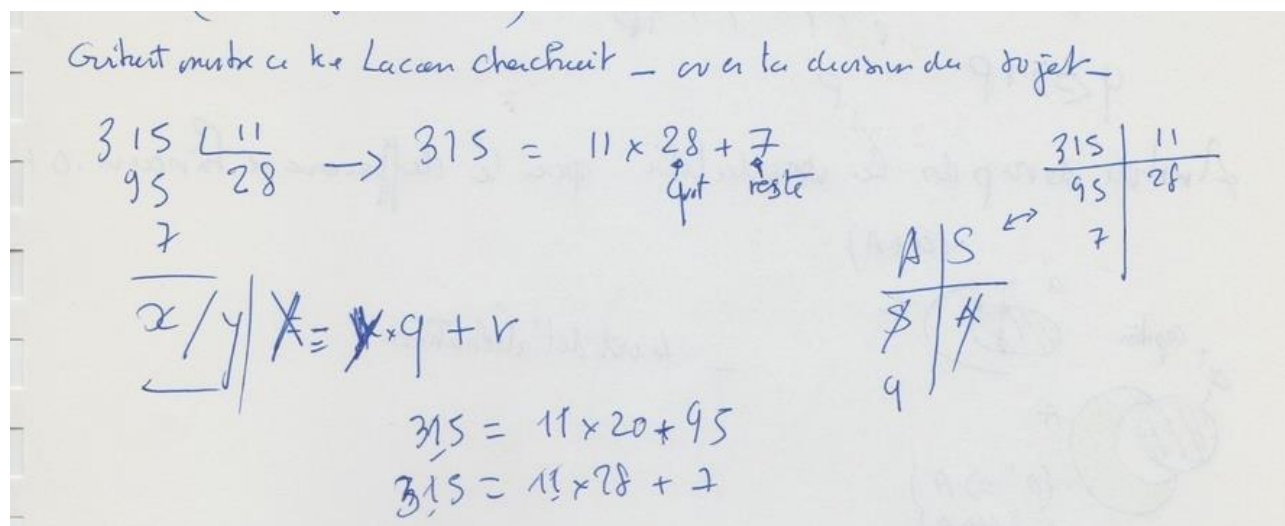 montre ce ke Lacan cherchait – la division du sujet –
315 | 11 → 315 = 11 × 28 + 7
95 28
7
quot reste
315 | 11
95 | 28
7
A | S ↔
$ | A̸
q
x / y | X = y × q + r
315 = 11 × 20 + 95
315 = 11 × 28 + 7